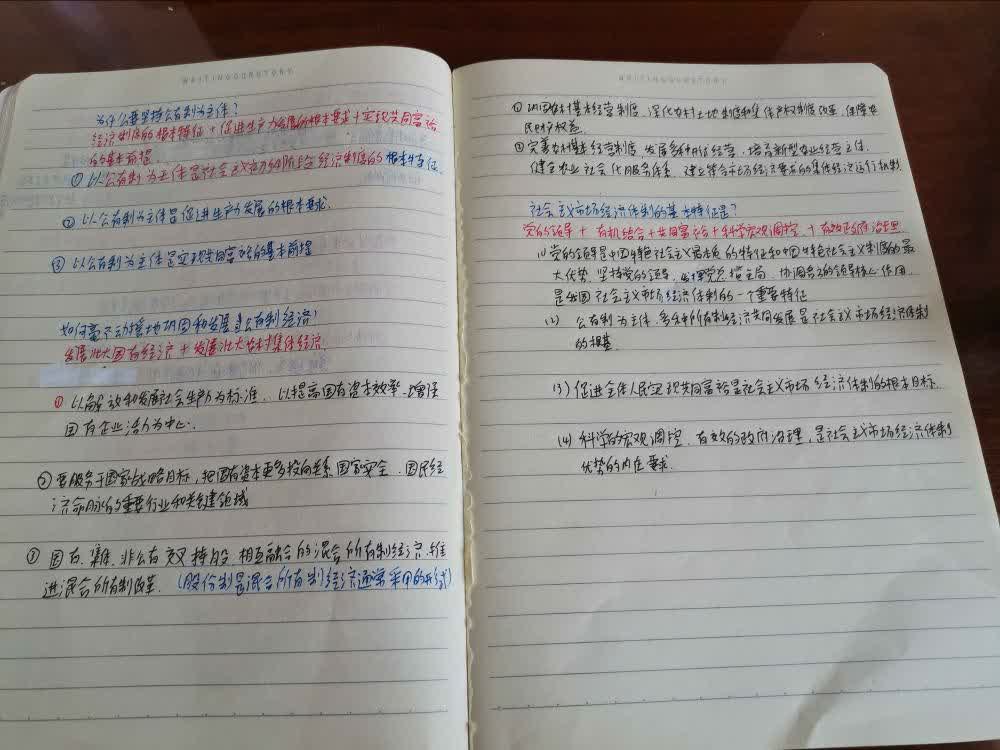 WRITINGOURSTORY
为什么要坚持公有制为主体?
经济制度的根本特征+促进生产力发展的根本要求+实现共同富裕
的基本前提.
①以公有制为主体是社会主义初级阶段经济制度的根本特征.
②以公有制为主体是促进生产力发展的根本要求.
③以公有制为主体是实现共同富裕的基本前提
如何毫不动摇地巩固和发展公有制经济?
发展壮大国有经济+发展壮大农村集体经济
①以解放和发展社会生产力为标准、以提高国有资本效率、增强
国有企业活力为中心.
②要服务于国家战略目标,把国有资本更多投向关系国家安全、国民经
济命脉的重要行业和关键领域
③国有、集体、非公有交叉持股、相互融合的混合所有制经济、推
进混合所有制改革.(股份制是混合所有制经济通常采用的形式)
WRITINGOURSTORY
①巩固农村基本经营制度、深化农村土地制度和集体产权制度改革、保障农
民财产权益.
②完善农村基本经营制度、发展多种形式经营、培育新型农业经营主体、
健全农业社会化服务体系、建立符合市场经济要求的集体经济运行机制.
社会主义市场经济体制的基本特征是?
党的领导+有机结合+共同富裕+科学宏观调控、+有效政府治理
(1)党的领导是中国特色社会主义最本质的特征和中国特色社会主义制度的最
大优势、坚持党的领导、发挥党总揽全局、协调各方的领导核心作用、
是我国社会主义市场经济体制的一个重要特征
(2)公有制为主体、多种所有制经济共同发展是社会主义市场经济体制
的根基.
(3)促进全体人民实现共同富裕是社会主义市场经济体制的根本目标.
(4)科学的宏观调控、有效的政府治理、是社会主义市场经济体制
优势的内在要求.